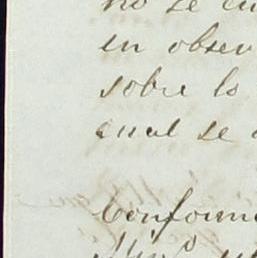 no se cu
en obser
sobre lo
cual se
Conform